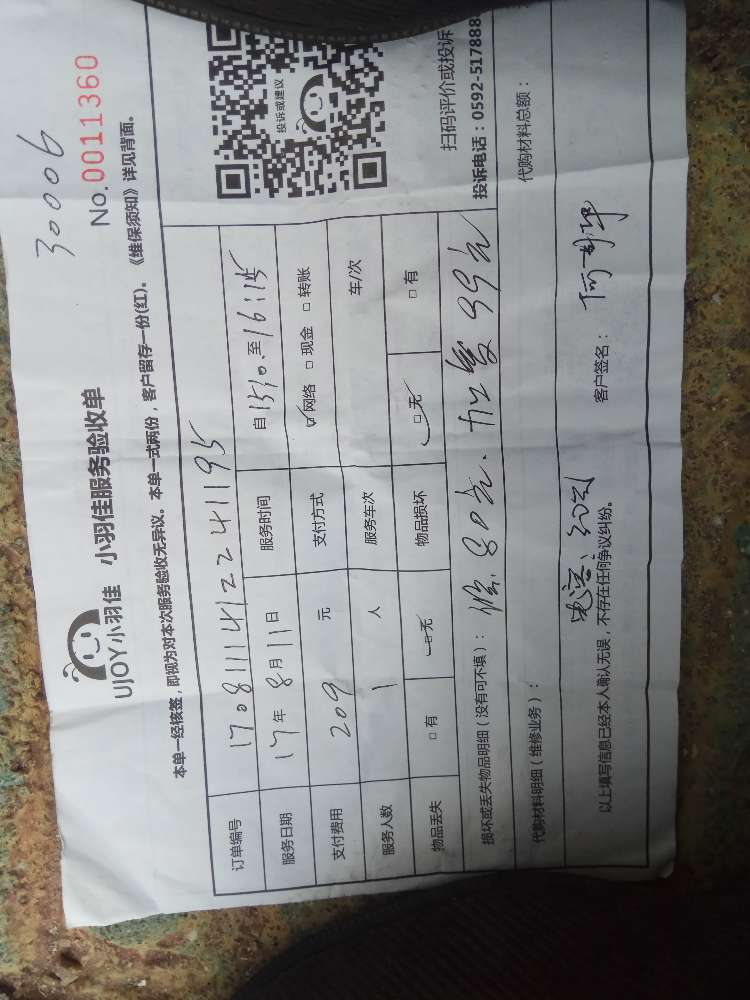 30006
No.0011360
UJOY小羽佳 小羽佳服务验收单
本单一经核签,即视为对本次服务验收无异议。本单一式两份,客户留存一份(红)。《维保须知》详见背面。
订单编号 1708111412241195
服务日期 17年8月11日 服务时间 自15:10至16:15
支付费用 209元 支付方式 ☑网络 □现金 □转账
服务人数 1人 服务车次 车/次
物品丢失 □有 ☑无 物品损坏 ☑无 □有
损坏或丢失物品明细(没有可不填): 修80元. 99元
代购材料明细(维修业务): 代购材料总额:
以上填写信息已经本人确认无误,不存在任何争议纠纷。 客户签名:
投诉或建议
扫码评价或投诉
投诉电话:0592-517888